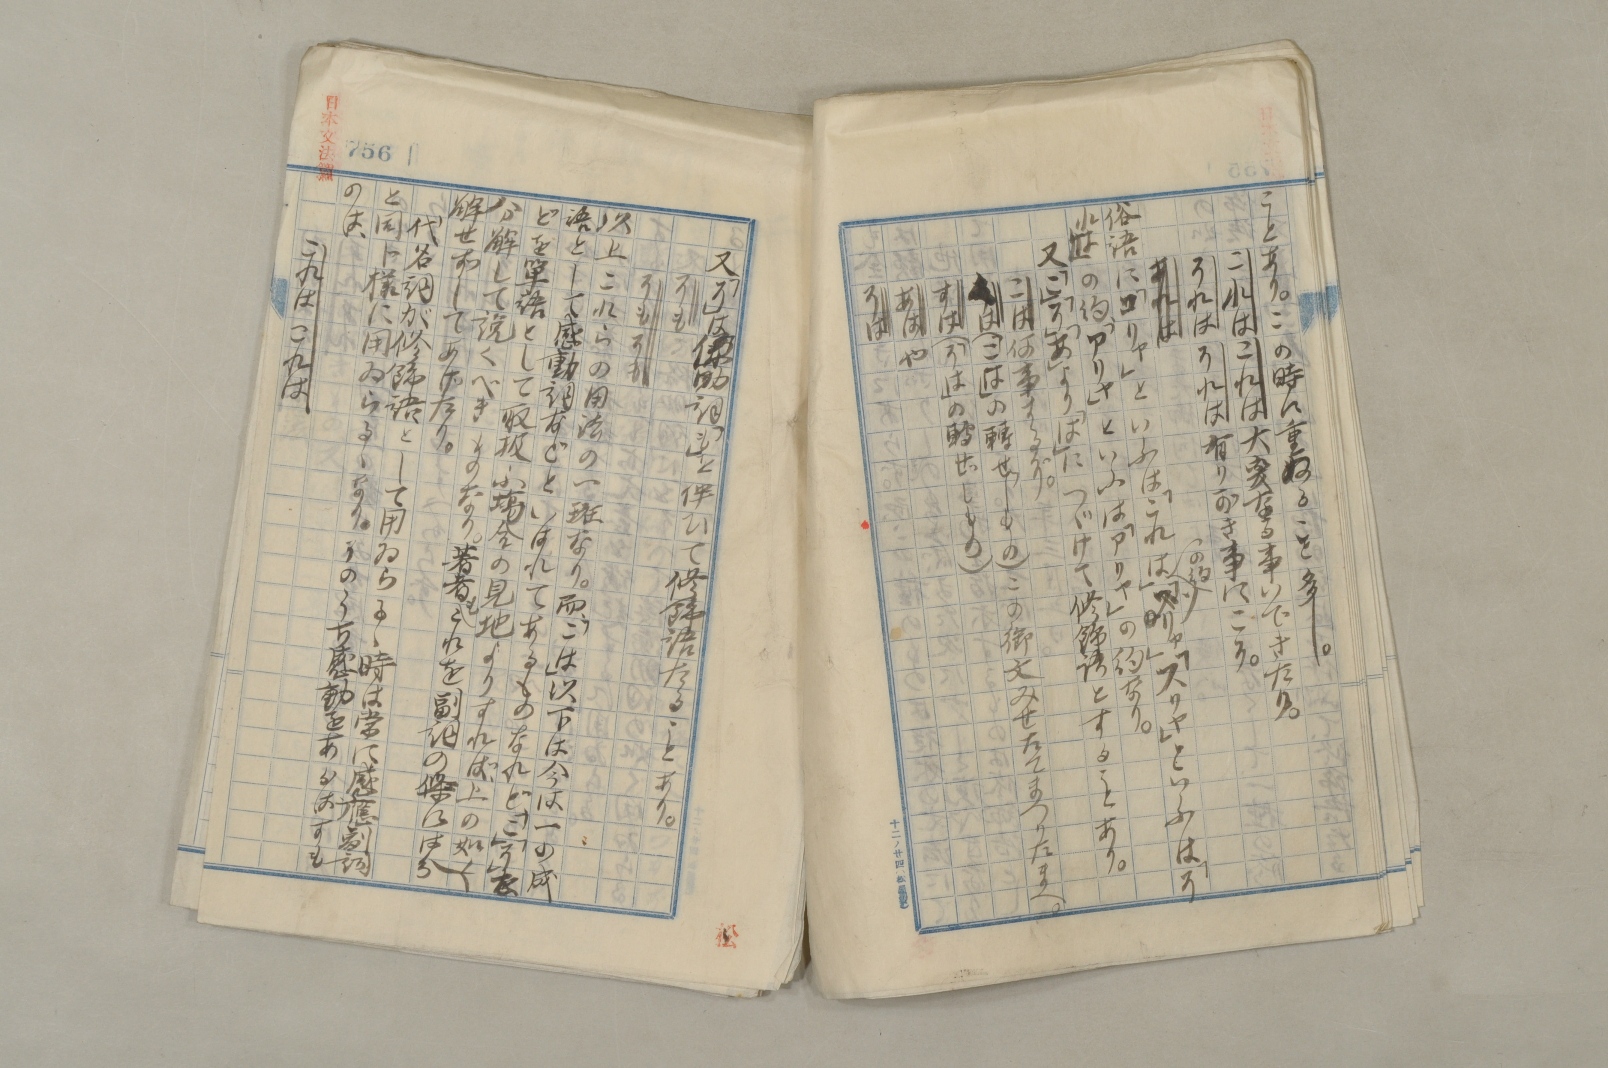 ことあり。この時に重ぬること多し。
これはこれは大変なる事いできたり。
それはそれは有りがき事にこそ。
あれは
俗語に「コリャ」といふは「これは」「スリャ」「スリャ」といふは「そ
の約
れは」の約「アリャ」といふは「アリャ」の約なり。
又「こ」「そ」「あ」より「は」につゞけて修飾語とすることあり。
こは何事するぞ。
は(こは」の轉せしもの)この御文みせたてまつりたまへ。
すは(そは」の轉せしもの)
あはや
そは
十二ノ廿四、松屋製
756
日本文法論
又「そ」は係助詞「も」と伴ひて修飾語たることあり。
そも
そもそも
以上これらの用法の一班なり。而「こは」以下は今は一の感
語として感動詞などといはれてあるものなれど「こ」「そ」を
どを單語として取扱ふ場合の見地よりすれば上の如く
分解して説くべきものなり。著者もこれを副詞の條にはら
解せおしてあげたり。
代名詞が修飾語として用ゐらるゝ時は常に感應副詞
と同じ様に用ゐらるゝなり。そのうち感動をあらはすも
のは、
これはこれは
松